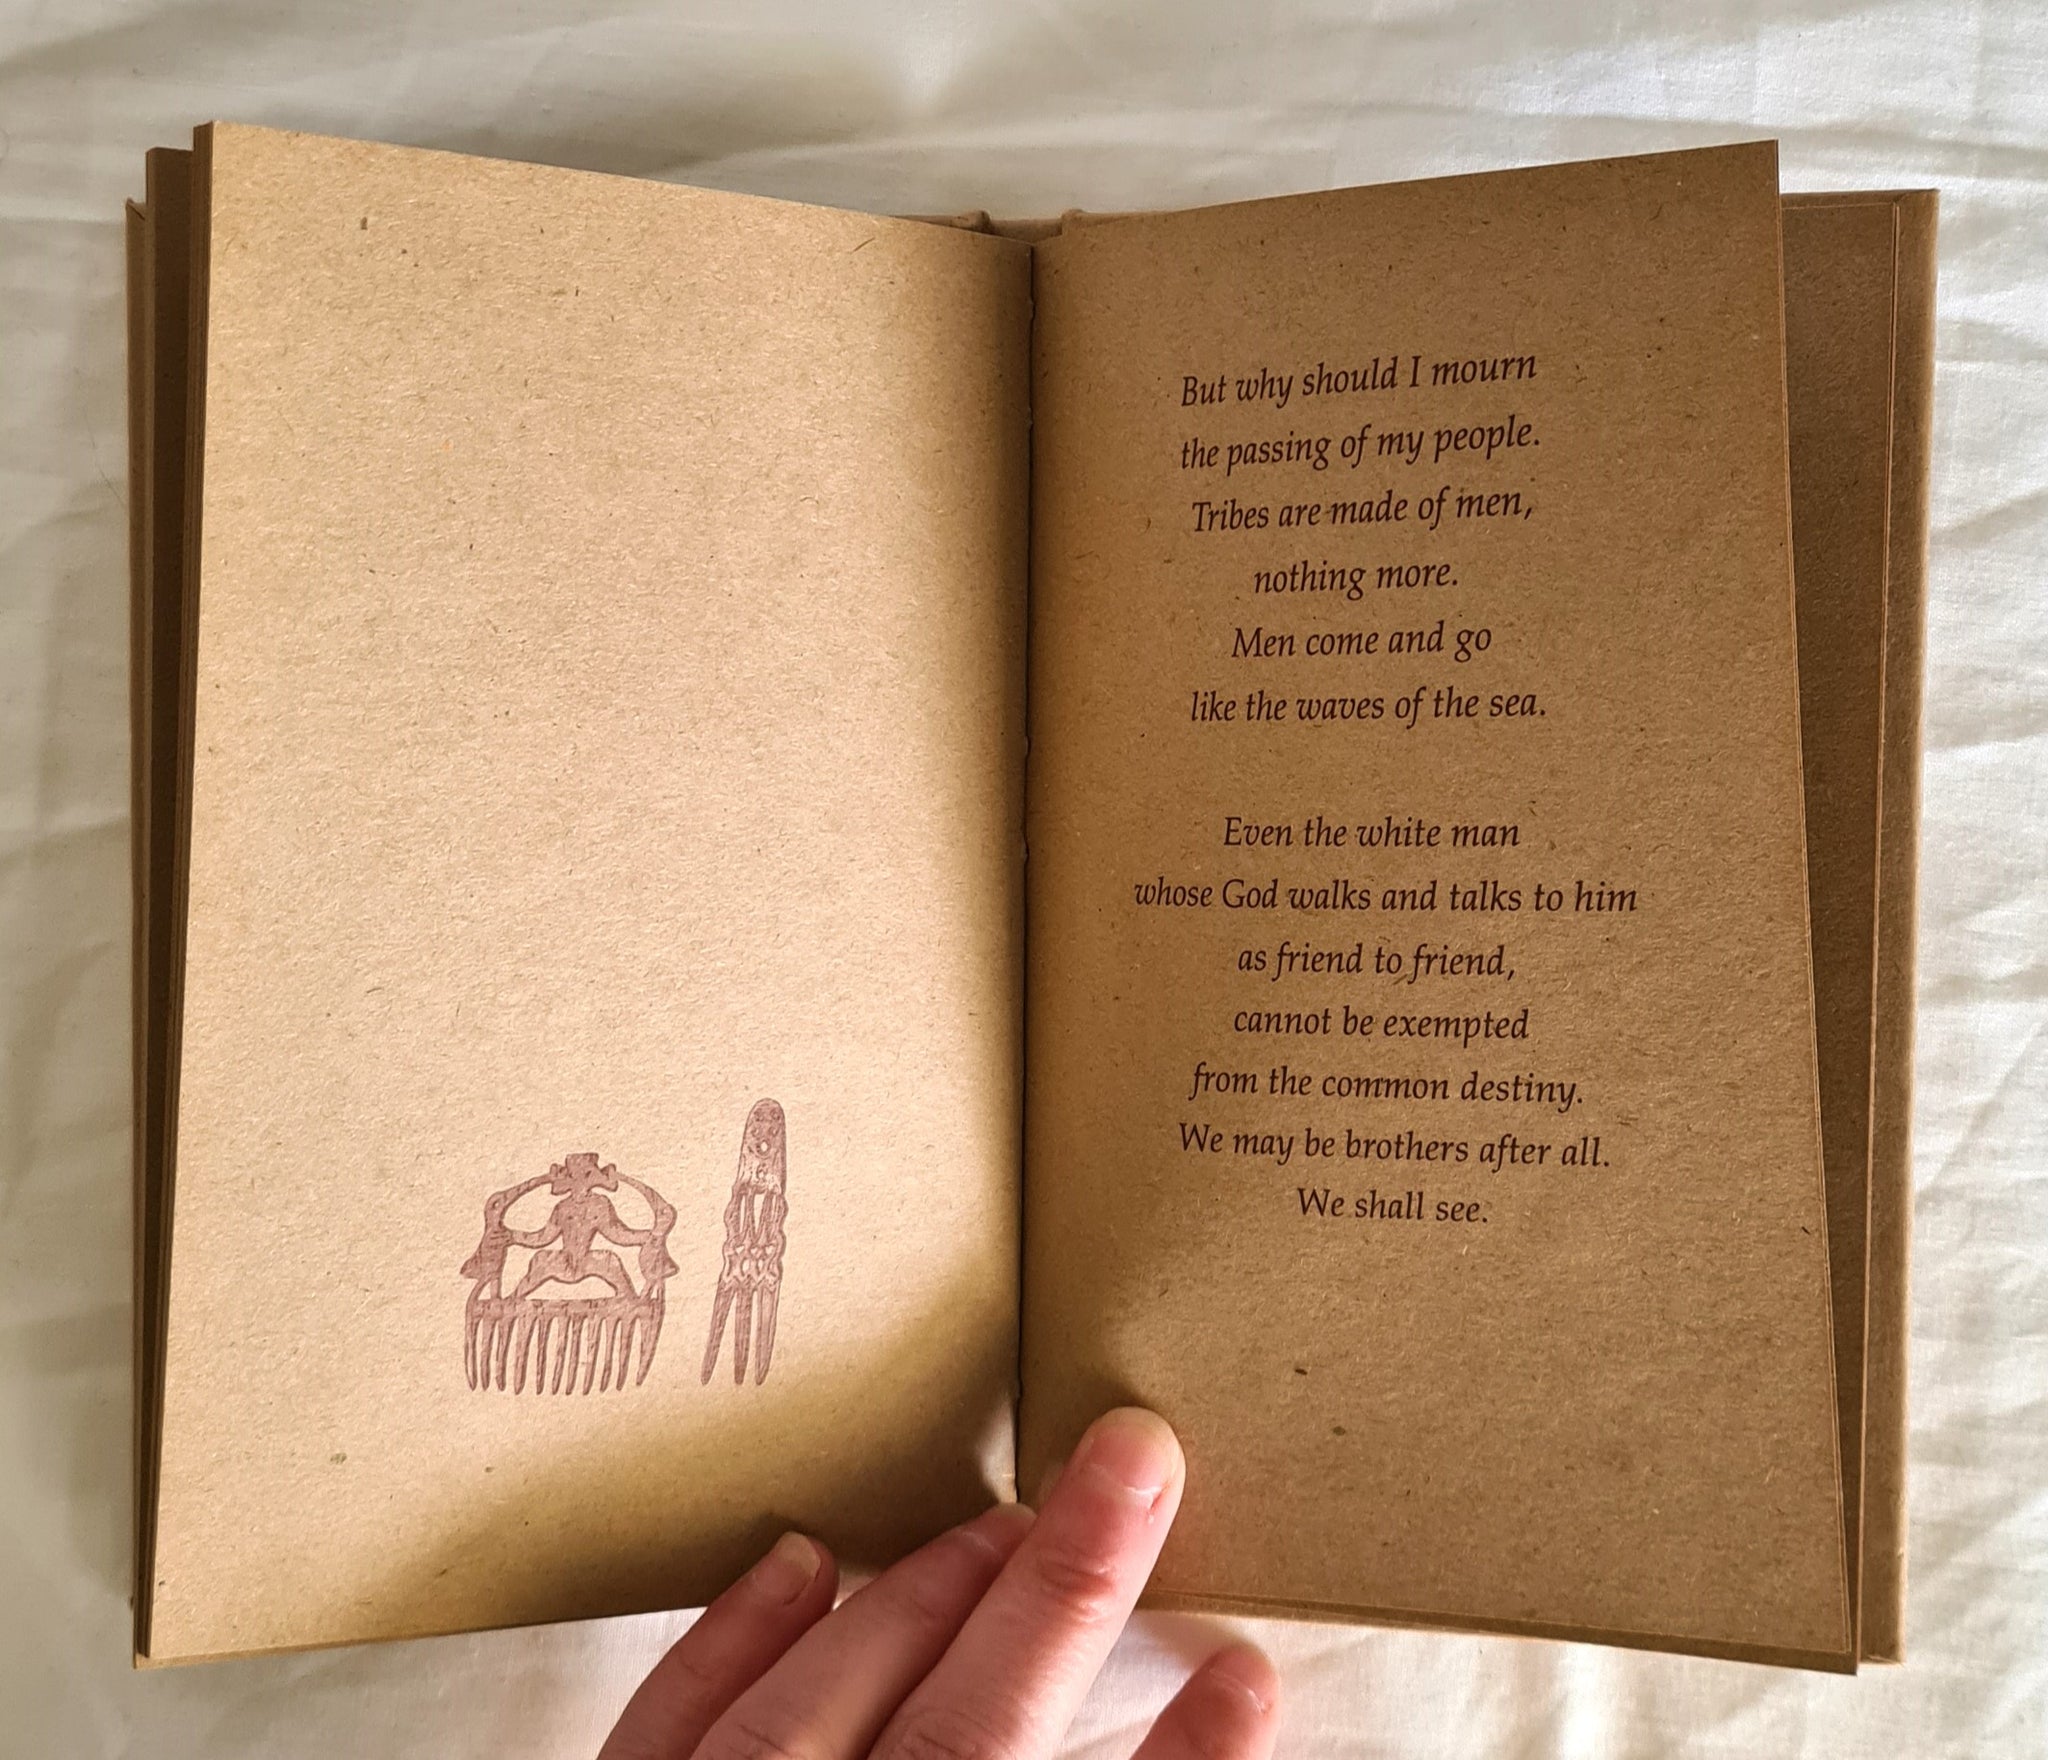 But why should I mourn
the passing of my people.
Tribes are made of men,
nothing more.
Men come and go
like the waves of the sea.
Even the white man
whose God walks and talks to him
as friend to friend,
cannot be exempted
from the common destiny.
We may be brothers after all.
We shall see.